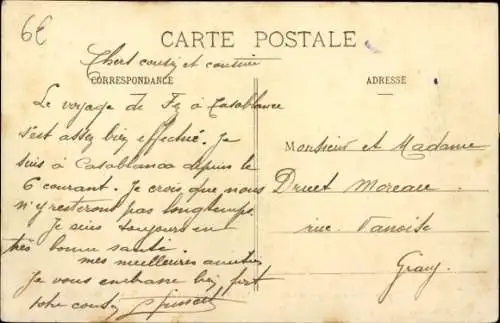 6€
CARTE POSTALE
Chers cousin et cousine
CORRESPONDANCE
ADRESSE
Le voyage de Fez à Casablanca
s'est assez bien effectué. Je
suis à Casablanca depuis le
6 courant. Je crois que nous
n'y resterons pas longtemps.
Je suis toujours en
très bonne santé.
mes meilleures amitiés
Je vous embrasse bien fort
votre cousin
Monsieur et Madame
Druet Moreau
rue Vanoise
Gray.